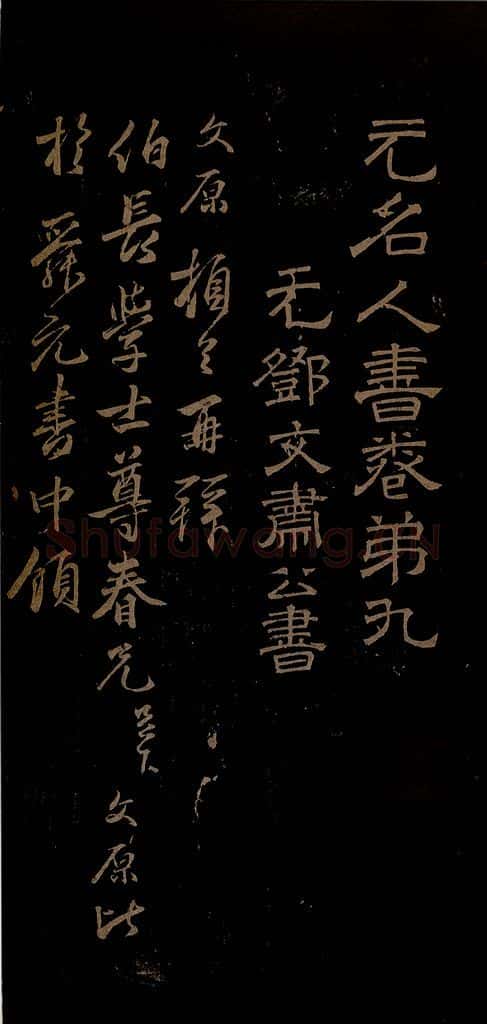 元名人書卷弟九
元鄧文肅公書
文原頓首再拜
伯長學士尊春兄足下文原比
於舜元書中領
Shufawang.CN